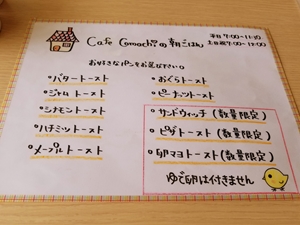 Cafe Comachiの朝ごはん
平日 7:00〜11:30
土日祝 7:00〜11:00
お好きなパンをお選び下さい。
・バタートースト
・ジャムトースト
・シナモントースト
・ハチミツトースト
・メープルトースト
・おぐらトースト
・ピーナットトースト
・サンドウィッチ(数量限定)
・ピザトースト(数量限定)
・卵マヨトースト(数量限定)
ゆで卵は付きません